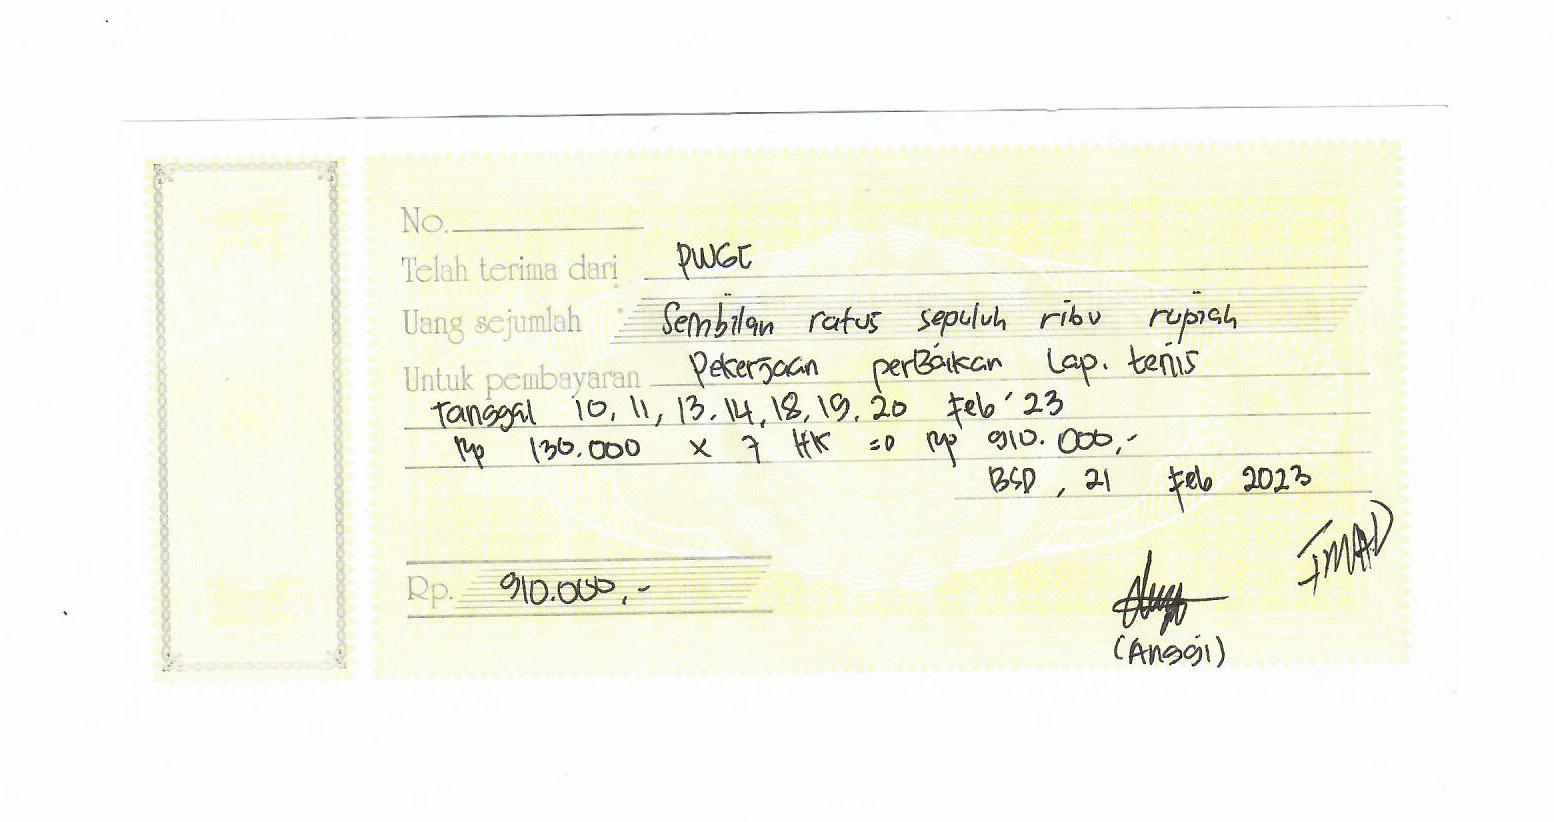 No.
Telah terima dari PWGC
Uang sejumlah : Sembilan ratus sepuluh ribu rupiah
Untuk pembayaran Pekerjaan perBaikan Lap. tenis
tanggal 10, 11, 13, 14, 18, 19, 20 Feb '23
Rp 130.000 x 7 HK => Rp 910.000,-
BSD, 21 Feb 2023
IMAD
Rp. 910.000,-
(Anggi)